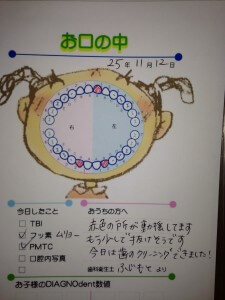 お口の中
25年11月12日
右 左
今日したこと
おうちの方へ
TBI
フッ素 ムリョー
PMTC
口腔内写真
赤色の所が動揺してます
もう少しで抜けそうです
今日は歯のクリーニングできました!
歯科衛生士 ふじもと より
お子様のDIAGNOdent数値